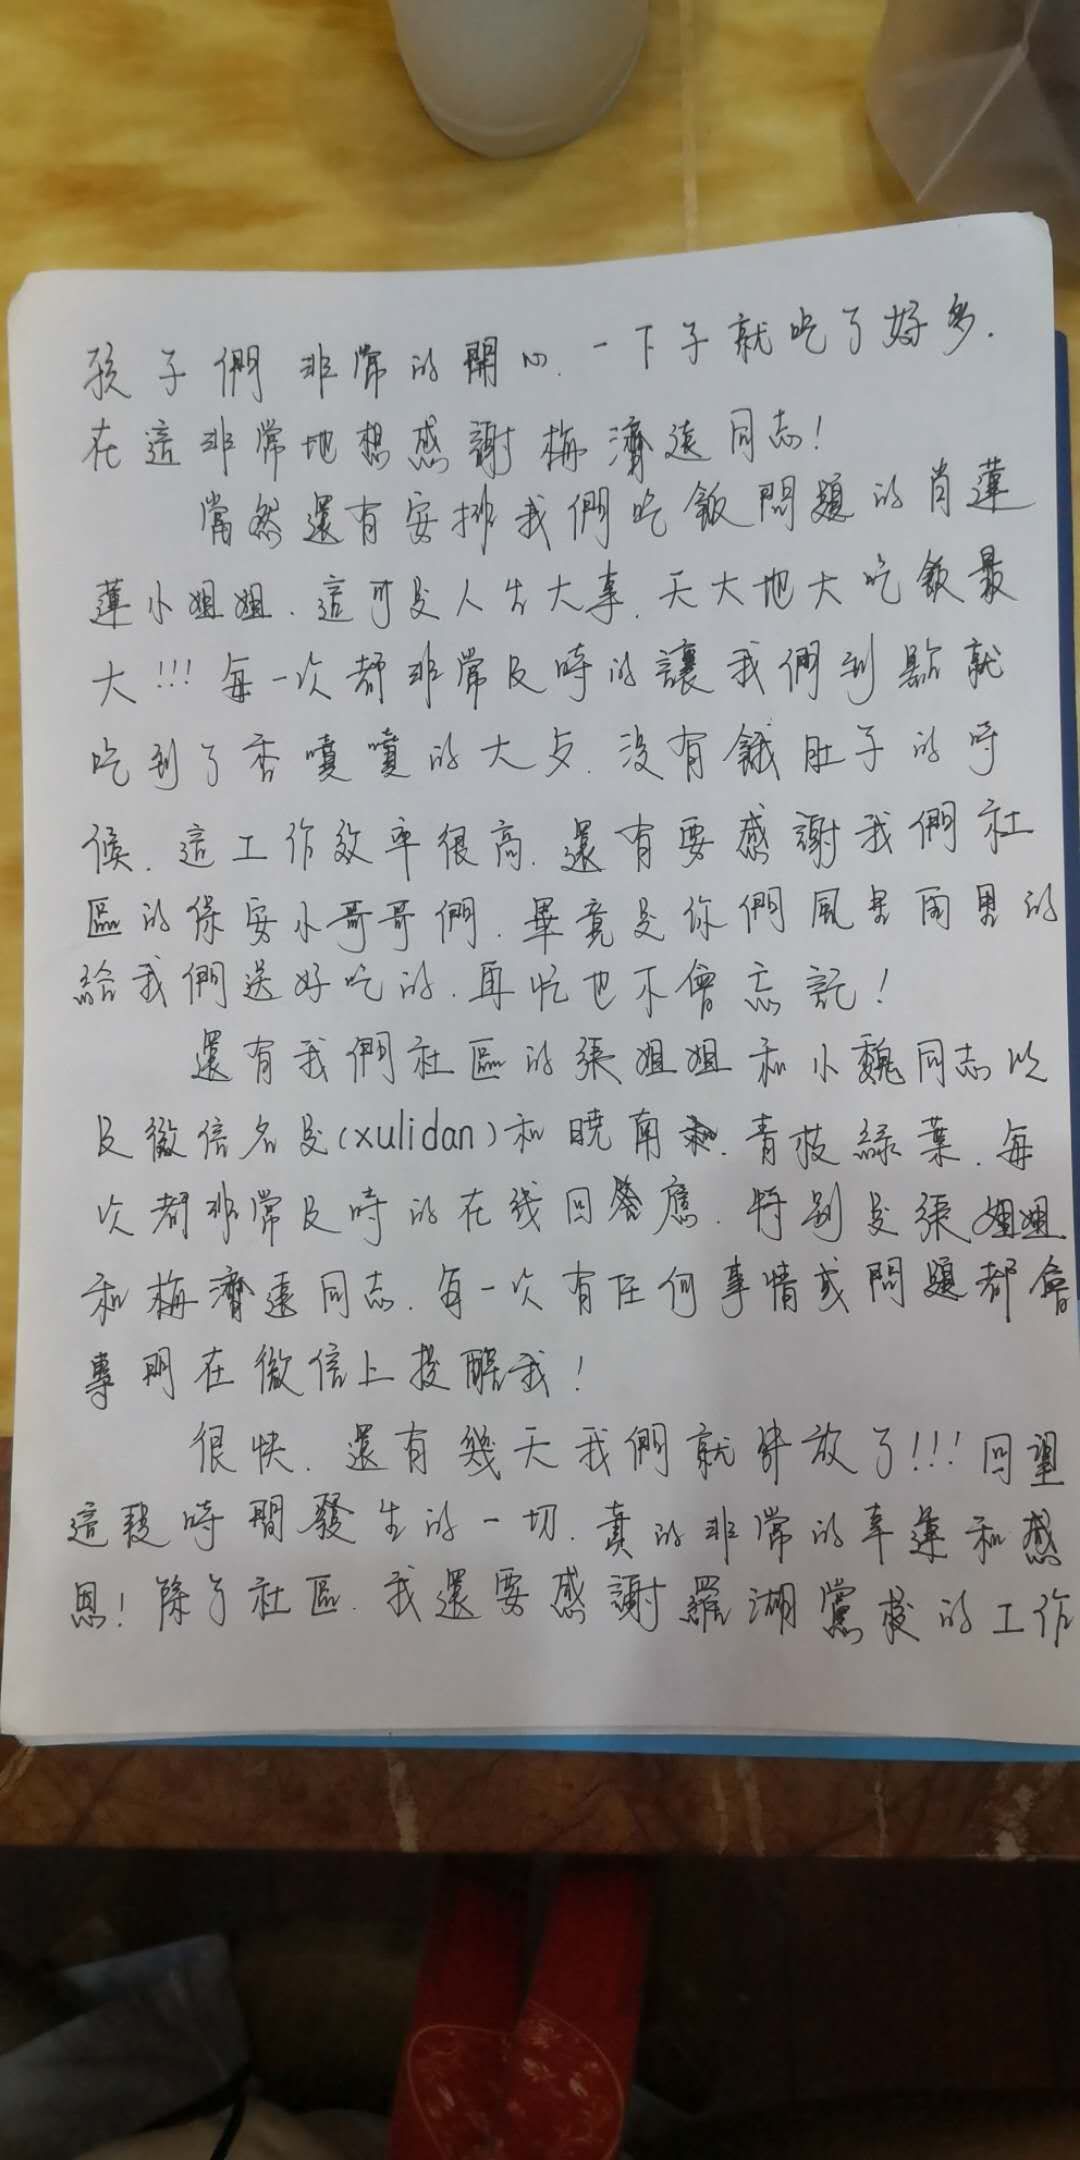 孩子們非常的開心.一下子就吃了好多.
在這非常地想感謝梅濟遠同志!
當然還有安排我們吃飯問題的肖蓮
蓮小姐姐.這可是人生大事.天大地大吃飯最
大!!!每一次都非常及時的讓我們到點就
吃到了香噴噴的大歺.沒有餓肚子的時
候.這工作效率很高.還有要感謝我們社
區的保安小哥哥們.畢竟是你們風里雨里的
給我們送好吃的.再忙也不會忘記!
還有我們社區的張姐姐和小魏同志以
及微信名是(xulidan)和曉南.青枝綠葉.每
次都非常及時的在线回答應.特别是張姐姐
和梅濟遠同志.每一次有任何事情或問題都會
專門在微信上提醒我!
很快.還有幾天我們就解放了!!!回望
這段時間發生的一切.真的非常的幸運和感
恩!除了社區.我還要感謝羅湖黨校的工作